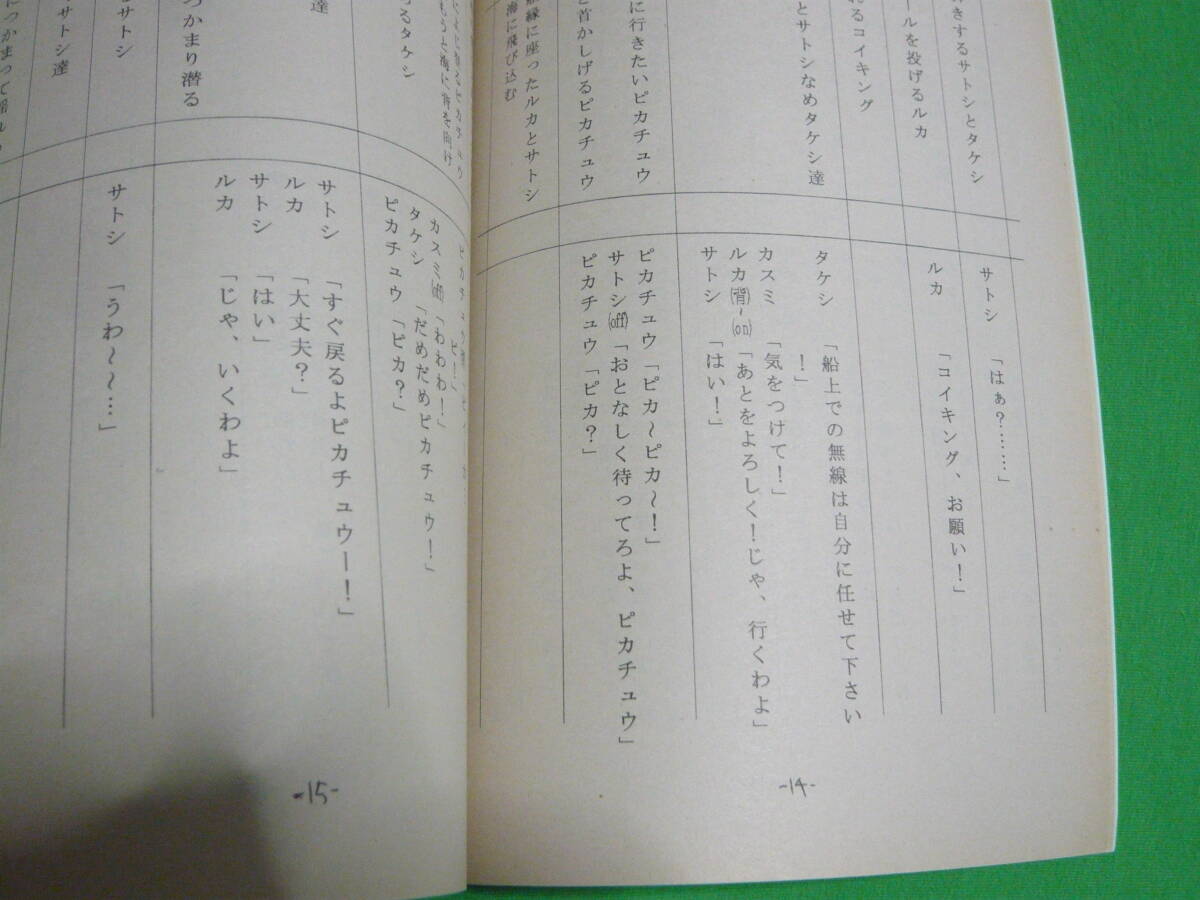 きするサトシとタケシ
ールを投げるルカ
れるコイキング
とサトシなめタケシ達
に行きたいピカチュウ
と首かしげるピカチュウ
船縁に座ったルカとサトシ
海に飛び込む
サトシ 「はぁ?……」
ルカ 「コイキング、お願い!」
タケシ 「船上での無線は自分に任せて下さい
!」
カスミ 「気をつけて!」
ルカ(背~on)「あとをよろしく!じゃ、行くわよ」
サトシ 「はい!」
ピカチュウ「ピカ~ピカ~!」
サトシ(off)「おとなしく待ってろよ、ピカチュウ」
ピカチュウ「ピカ?」
-14-
ピカチュウ
るタケシ
達
つかまり潜る
サトシ
サトシ達
につかまって
ピカチュウ
ピ!」
カスミ(off)「わわわ!」
タケシ 「だめだめピカチュウ!」
ピカチュウ「ピカ?」
サトシ 「すぐ戻るよピカチュウー!」
ルカ 「大丈夫?」
サトシ 「はい」
ルカ 「じゃ、いくわよ」
サトシ 「うわ~~…」
-15-